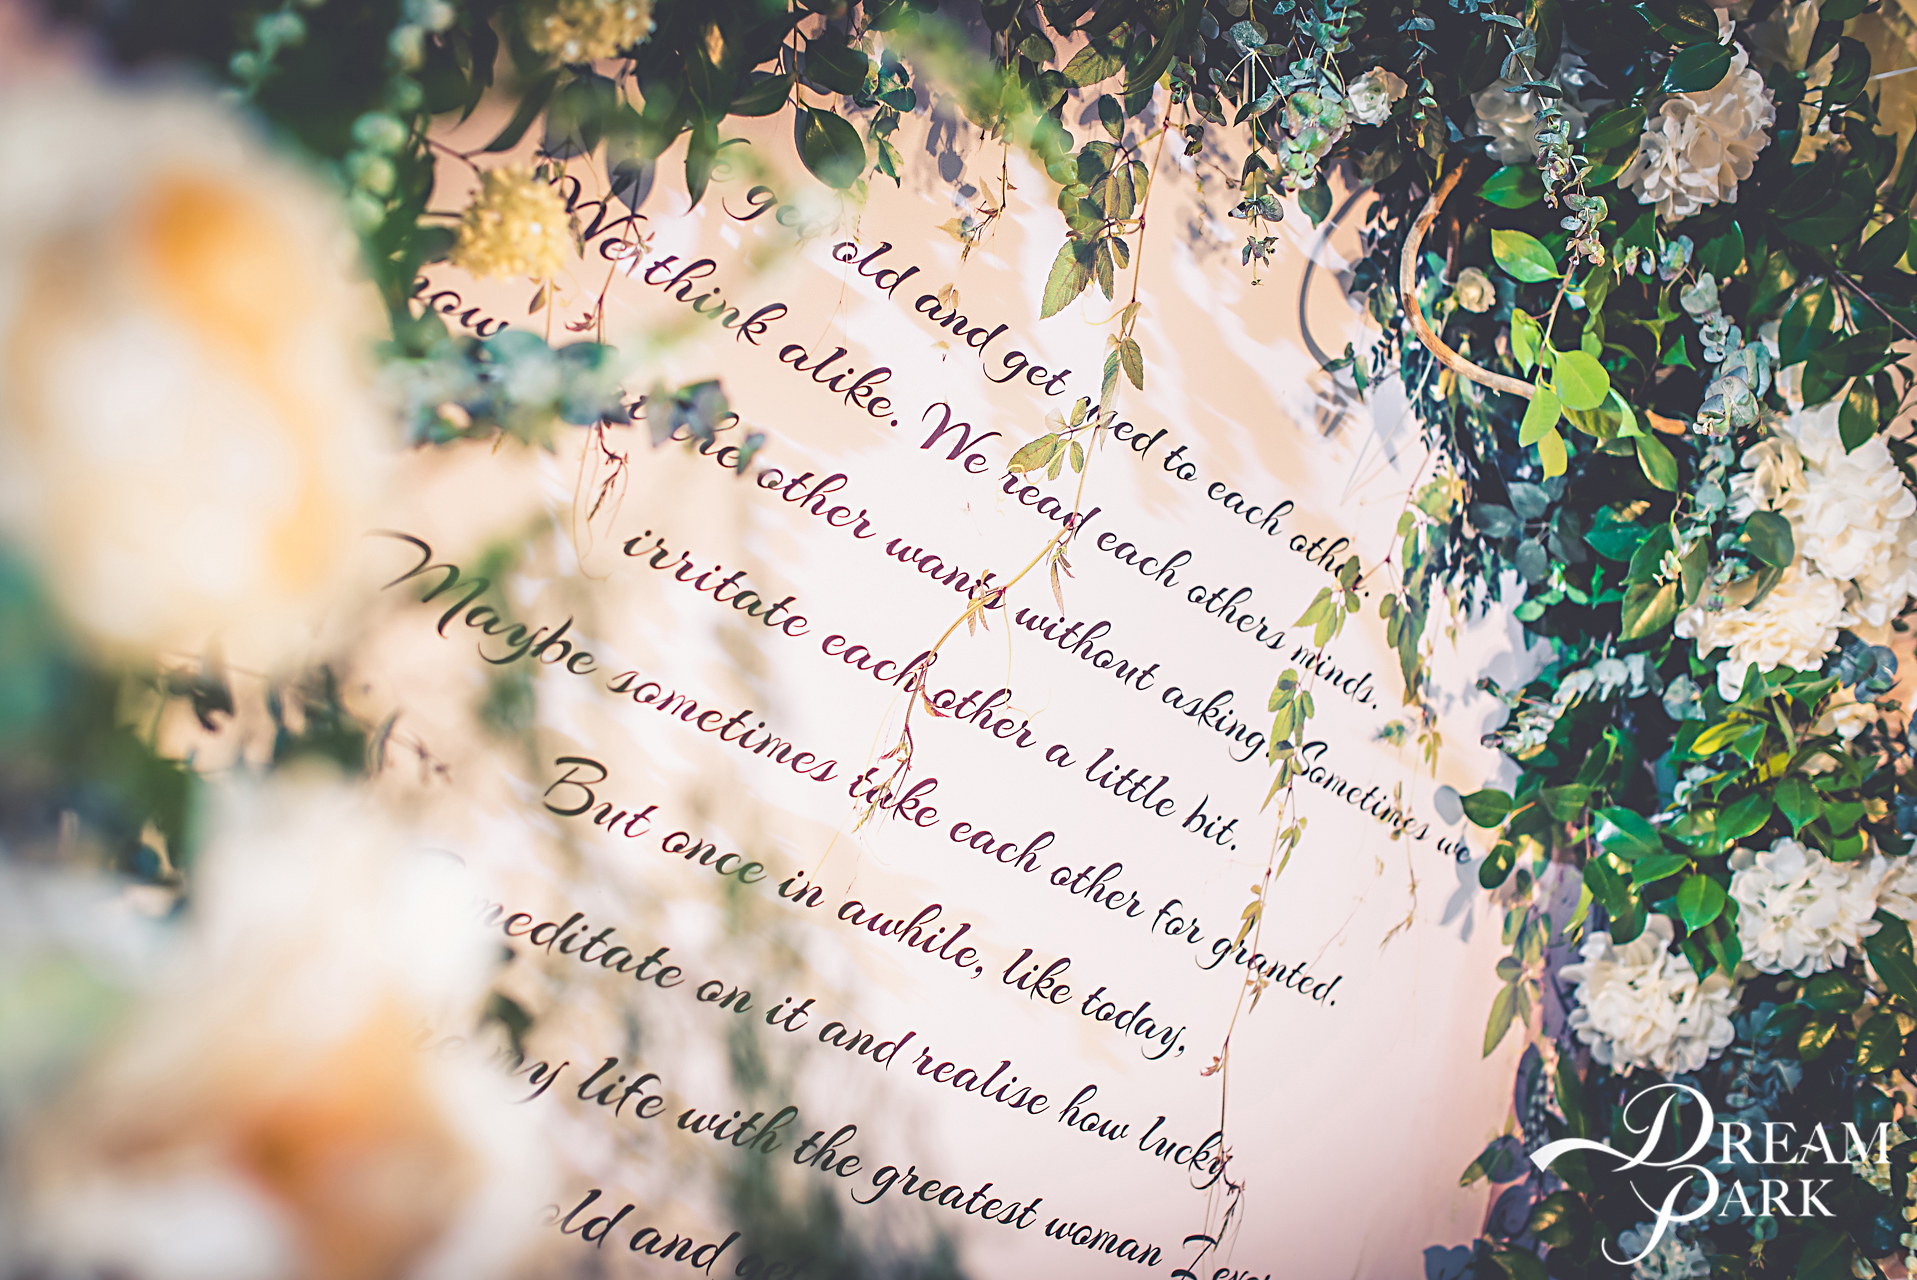 old and get used to each other.
We think alike. We read each others minds.
the other wants without asking. Sometimes we
irritate each other a little bit.
Maybe sometimes take each other for granted.
But once in awhile, like today,
meditate on it and realise how lucky
my life with the greatest woman I ever
old and
DREAM
PARK